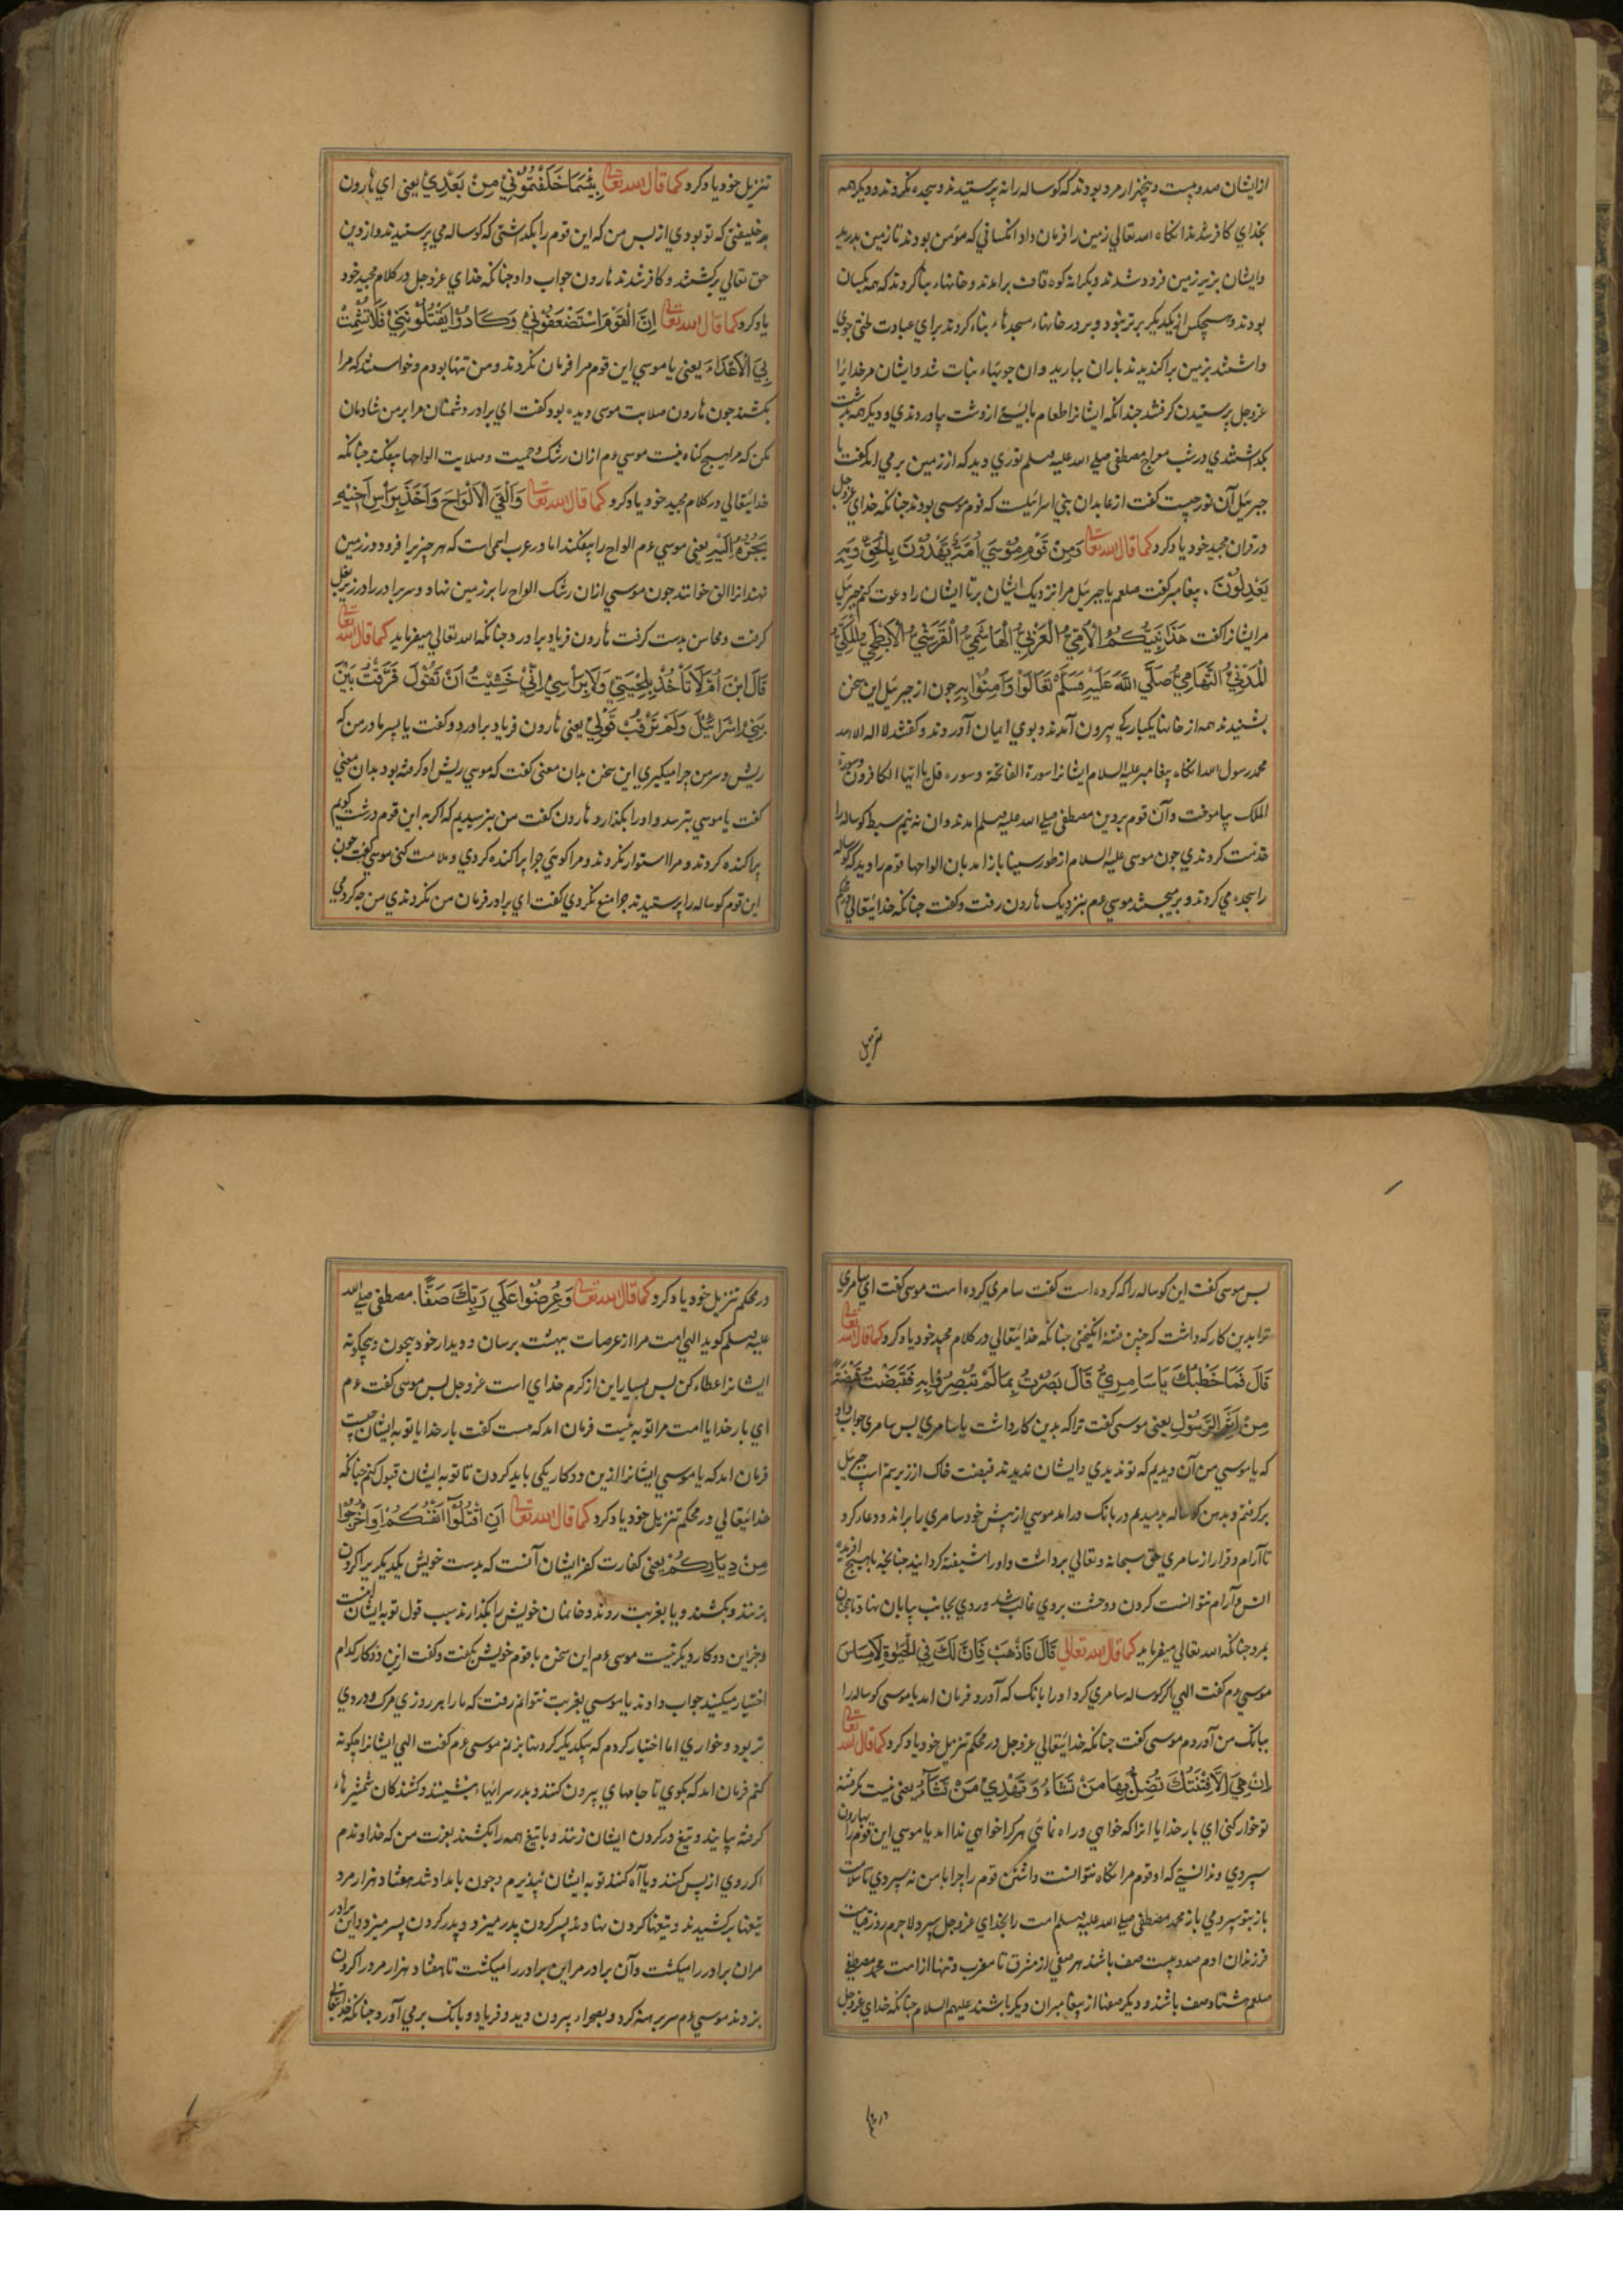 ازایشان صد و بیست و پنجهزار مرد بودند که کوساله را نه پرستیدند و سجده نکردند و دیکر همه
بخدای کافر شدند انکاه الله تعالي زمین را فرمان داد انکسانی که مؤمن بودند تا زمین بدرید
وایشان بزیر زمین فرود شدند و بکرانه کوه قاف برامدند و خانهاء بنا کردند که همه یکسان
بودند و هیچکس از یکدیکر برتر نبود و بر در خانهاء مسجدهاء بناء کردند برای عبادت جوی
داشتند بزمین براکندیدند باران ببارید وان جوبهاء نبات شد وایشان مر خدایرا
عزوجل پرستیدن کرفتند چندانکه ایشانرا طعام بایستي از دشت بیاوردندی و دیکر همه بدشت
بکذاشتندي و در شب معراج مصطفی صلی الله علیه وسلم نوري دید که از زمین بر می امد کفت یا
جبرئیل آن نور چیست کفت از عابدان بني اسرائیلست که قوم موسی بودند چنانکه خداي عزوجل
در قران مجید خود یاد کرد کما قال الله تعالی وَمِنْ قَوْمِ مُوْسَي اُمَّةٌ يَهْدُوْنَ بِالْحَقِّ وَبِهِ
يَعْدِلُوْنَ، پیغامبر کفت صلعم یا جبرئیل مرا نزدیک ایشان بر تا ایشان را دعوت کنم جبرئیل
مر ایشانرا کفت هَذَا نَبِيُّكُمُ الْاُمِّيُّ الْعَرَبِيُّ الْهَاشِمِيُّ الْقُرَشِيُّ الْاَبْطَحِيُّ الْمَكِّيُّ
الْمَدَنِيُّ التِّهَامِيُّ صَلَّي اللهُ عَلَيْهِ وَسَلَّمْ تَعَالَوْا وَآمِنُوْا بِهِ چون از جبرئیل این سخن
بشنیدند همه از خانها یکبارکي بیرون آمدند و بوي ایمان آوردند و کفتند لا اله الا الله
محمد رسول الله انکاه پیغامبر علیه السلام ایشانرا سورة الفاتحة و سوره قل یا ایها الکافرون وسورة
الملک بیاموخت وآن قوم بر دین مصطفی صلی الله علیه وسلم امدند وان نه نیم سبط کوساله را
خدمت کردندي چون موسی علیه السلام از طور سینا بازامد بان الواحها قوم را دید که کوساله
را سجده می کردند و موسي ءم بنزدیک هارون رفت و کفت چنانکه خدایتعالي در محکم
تنزیل
تنزیل خود یاد کرد کما قال الله تعالی بِئْسَمَا خَلَفْتُمُوْنِيْ مِنْ بَعْدِيْ یعنی اي هارون
بد خلیفتی که تو بودي از بس من که این قوم را بکذاشتی که کوساله می پرستیدند واز دین
حق تعالي برکشتند و کافر شدند هارون جواب داد چنانکه خداي عزوجل در کلام مجید خود
یاد کرد کما قال الله تعالی اِنَّ الْقَوْمَ اسْتَضْعَفُوْنِيْ وَكَادُوْا يَقْتُلُوْنَنِيْ فَلَا تُشْمِتْ
بِيَ الْاَعْدَاءَ یعنی یا موسي این قوم مرا فرمان نکردند ومن تنها بودم و خواستند که مرا
بکشند چون هارون صلابت موسی دیده بود کفت اي برادر دشمنان مرا بر من شادمان
مکن که مرا هیچ کناه نیست موسي ءم ازان رشک و حمیت و صلابت الواحها بیفکند چنانکه
خدایتعالي در کلام مجید خود یاد کرد کما قال الله تعالی وَاَلْقَي الْاَلْوَاحَ وَاَخَذَ بِرَاْسِ اَخِيْهِ
يَجُرُّهُ اِلَيْهِ یعنی موسي ءم الواح را بیفکند اما در عرب اسمی است که هر چیزیرا فرود در زمین
نهند انرا القی خوانند چون موسي ازان رشک الواح را بر زمین نهاد و سر برادر را در زیر بغل
کرفت و محاسن بدست کرفت هارون فریاد براورد چنانکه الله تعالي میفرماید کما قال الله تعالی
قَالَ ابْنَ اُمَّ لَا تَاْخُذْ بِلِحْيَتِيْ وَلَا بِرَاْسِيْ اِنِّيْ خَشِيْتُ اَنْ تَقُوْلَ فَرَّقْتَ بَيْنَ
بَنِيْ اِسْرَائِيْلَ وَلَمْ تَرْقُبْ قَوْلِيْ یعنی هارون فریاد براورد و کفت یا پسر مادر من که
ریش و سر من چرا میکیري این سخن بدان معنی کفت که موسي ریش او کرفته بود بدان معني
کفت یا موسي بترسد و اورا بکذارد هارون کفت من بترسیدیم که اکر به این قوم درشت کویم
پراکنده کردند و مرا استوار نکردند و مرا کوئي چرا پراکنده کردي و ملامت کنی موسي کفت چون
این قوم کوساله را پرستیدند چرا منع نکردي کفت اي برادر فرمان من نکردندي من چه کردمی
بس موسی کفت این کوساله را که کرده است کفت سامري کرده است موسی کفت اي سامري
ترا بدین کار که داشت که چنین فتنه انکیختی چنانکه خدایتعالي در کلام مجید خود یاد کرد کما قال الله تعالی
قَالَ فَمَا خَطْبُكَ يَا سَامِرِيُّ قَالَ بَصُرْتُ بِمَا لَمْ تَبْصُرُوْا بِهِ فَقَبَضْتُ قَبْضَةً
مِنْ اَثَرِ الرَّسُوْلِ یعنی موسی کفت ترا که بدین کار داشت یا سامري بس سامري جواب داد
که یا موسي من آن دیدم که تو ندیدي وایشان ندیدند قبضت خاک از زیر سم اسپ جبرئیل
برکرفتم و بدهن کوساله بدمیدم در بانک درامد موسي از پیش خود سامري را براند و دعا کرد
تا آرام و قرار از سامري حق سبحانه و تعالي برداشت و اورا شیفته کردانید چنانچه با هیچ افریده
انس و آرام نتوانست کردن و وحشت بر وي غالب شد و روي بجانب بیابان نهاد تا
بمرد چنانکه الله تعالي میفرماید کما قال الله تعالي قَالَ فَاذْهَبْ فَاِنَّ لَكَ فِي الْحَيٰوةِ لَامِسَاسَ
موسي ءم کفت الهي اکر کوساله سامري کرد اورا بانک که آورد فرمان امد یا موسی کوساله را
ببانک من آوردم موسی کفت چنانکه خدایتعالي عزوجل در محکم تنزیل خود یاد کرد کما قال الله تعالی
اِنْ هِيَ اِلَّا فِتْنَتُكَ تُضِلُّ بِهَا مَنْ تَشَاءُ وَتَهْدِيْ مَنْ تَشَآءُ یعنی نیست مکر فتنه
تو خوار کنی اي بار خدایا انرا که خواهی و راه نمائي هر کرا خواهي ندا امد یا موسي این قوم را بهارون
سپردي و ندانستي که او قوم مرا نکاه نتوانست داشتن قوم را چرا با من نه سپردي تا سلامت
باز بتو سپردمی باز محمد مصطفی صلی الله علیه وسلم امت را بخداي عزوجل سپرد لاجرم روز قیامت
فرزندان ادم صد و بیست صف باشند هر صفی از مشرق تا مغرب و تنها از امت محمد مصطفی
صلعم هشتاد صف باشند و دیکر صفها از پیغامبران دیکر باشند علیهم السلام چنانکه خداي عزوجل
در محکم
در محکم تنزیل خود یاد کرد کما قال الله تعالی وَعُرِضُوْا عَلَي رَبِّكَ صَفًّا. مصطفی صلی الله
علیه وسلم کوید الهي امت مرا از عرصات ببهشت برسان و دیدار خود بیچون و بیچکونه
ایشانرا عطاء کن بس بسیار این از کرم خداي است عزوجل بس موسی کفت ءم
اي بار خدایا امت مرا توبه نیست فرمان امد که هست کفت بار خدایا توبه ایشان چیست
فرمان امد که یا موسي ایشانرا ازین دو کار یکی باید کردن تا توبه ایشان قبول کنم چنانکه
خدایتعالي در محکم تنزیل خود یاد کرد کما قال الله تعالی اَنِ اقْتُلُوْآ اَنْفُسَكُمْ اَوِاخْرُجُوْا
مِنْ دِيَارِكُمْ یعنی کفارت کفر ایشان آنست که بدست خویش یکدیکر را کردن
بزنند و بکشند و یا بغربت روند و خانمان خویش را بکذارند سبب قول توبه ایشان اینست
و جز این دو کار دیکر نیست موسی ءم این سخن با قوم خویش بکفت و کفت ازین دو کار کدام
اختیار میکنید جواب دادند یا موسي بغربت نتوانیم رفت که ما را هر روزي مرک و دردي
نو بود و خواري اما اختیار کردیم که یکدیکر کردنها بزنیم موسی ءم کفت الهي ایشانرا چکونه
کنم فرمان امد که بکوي تا جامهاي بیرون کنند و بدر سرایهاء بنشینند و کشندکان شمشیرهاء
کرفته بیایند و تیغ در کردن ایشان زنند و با تیغ همه را بکشند بعزت من که خداوندم
اکر روي از پس کنند و یا آه کنند توبه ایشان نپذیرم و چون بامداد شد هفتاد هزار مرد
تیغها برکشیدند و تیغها کردن نهادند پسر کردن پدر میزد و پدر کردن پسر میزد و این برادر
مران برادر را میکشت وآن برادر مر این برادر را میکشت تا هفتاد هزار مرد را کردن
بزدند موسي ءم سر برهنه کرد و بصحراء بیرون دوید و فریاد و بانک بر می آورد چنانکه خدایتعالی